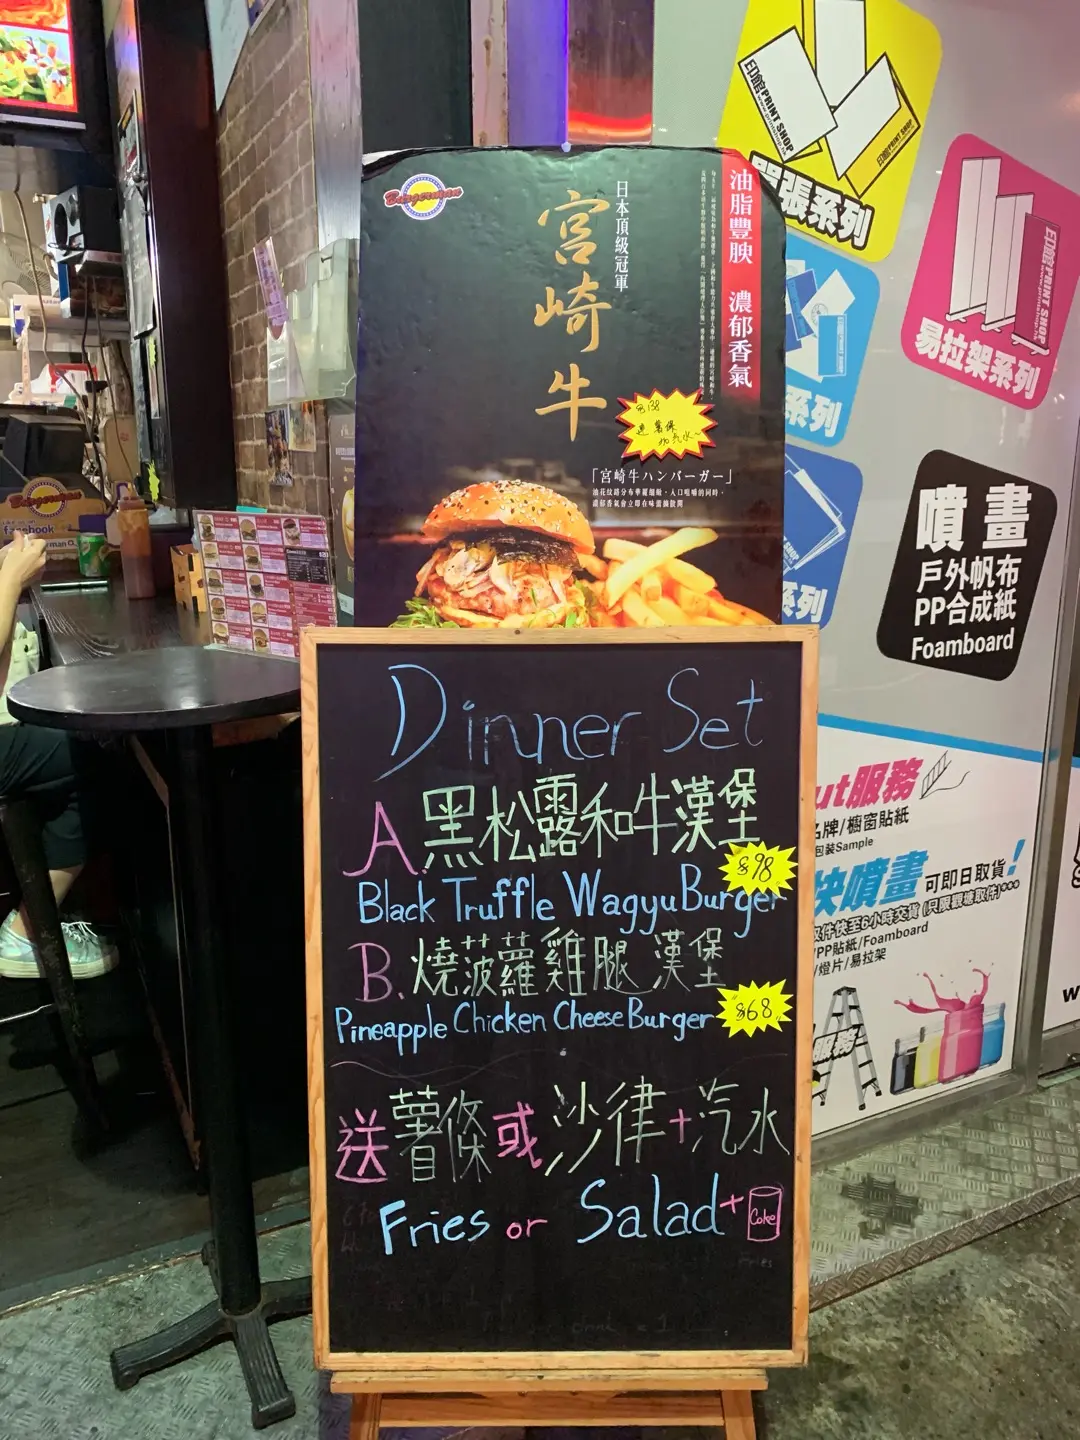 Burgerman
日本頂級冠軍
宮崎牛
油脂豐腴 濃郁香氣
$138
連薯條
加汽水
「宮崎牛ハンバーガー」
Dinner Set
A.黑松露和牛漢堡
$98
Black Truffle Wagyu Burger
B.燒菠蘿雞腿漢堡
Pineapple Chicken Cheese Burger
$68
送薯條或沙律+汽水
Fries or Salad+
Coke
Burgerman
facebook
印館 PRINT SHOP
PRINT SHOP
單張系列
印館 PRINT SHOP
易拉架系列
系列
系列
噴畫
戶外帆布
PP合成紙
Foamboard
ut服務
名牌/櫥窗貼紙
包裝Sample
快噴畫 可即日取貨!
件快至6小時交貨 (只限觀塘取件)
PP貼紙/Foamboard
/燈片/易拉架
服務